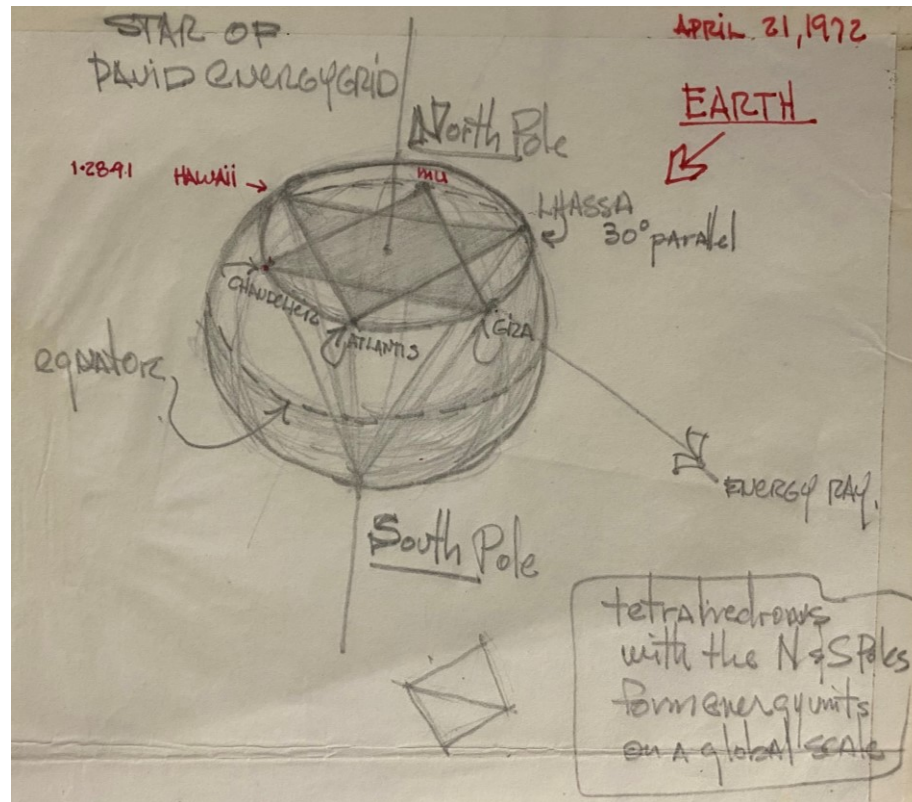 STAR OF
DAVID ENERGYGRID
APRIL 21, 1972
EARTH
North Pole
1·28·91 HAWAII
MU
LHASSA
30° parallel
CHANDELIER
ATLANTIS
GIZA
equator
ENERGY RAY.
South Pole
tetrahedrons
with the N & S Poles
form energy units
on a global scale